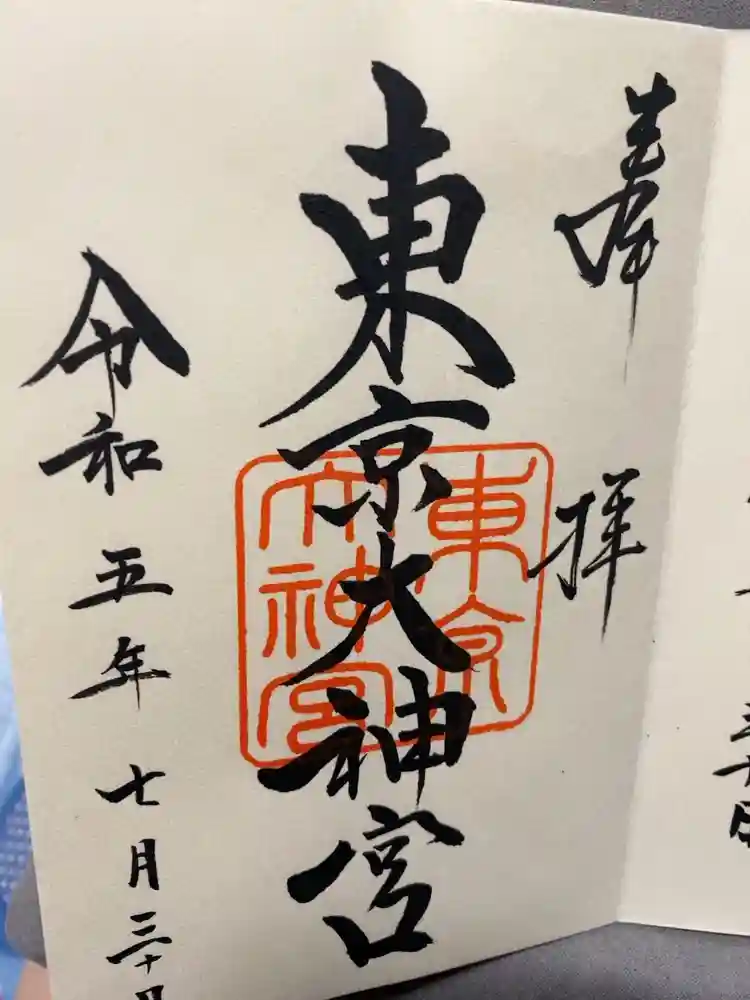 奉拝
東京大神宮
東京大神宮
令和五年七月三十日
三十日